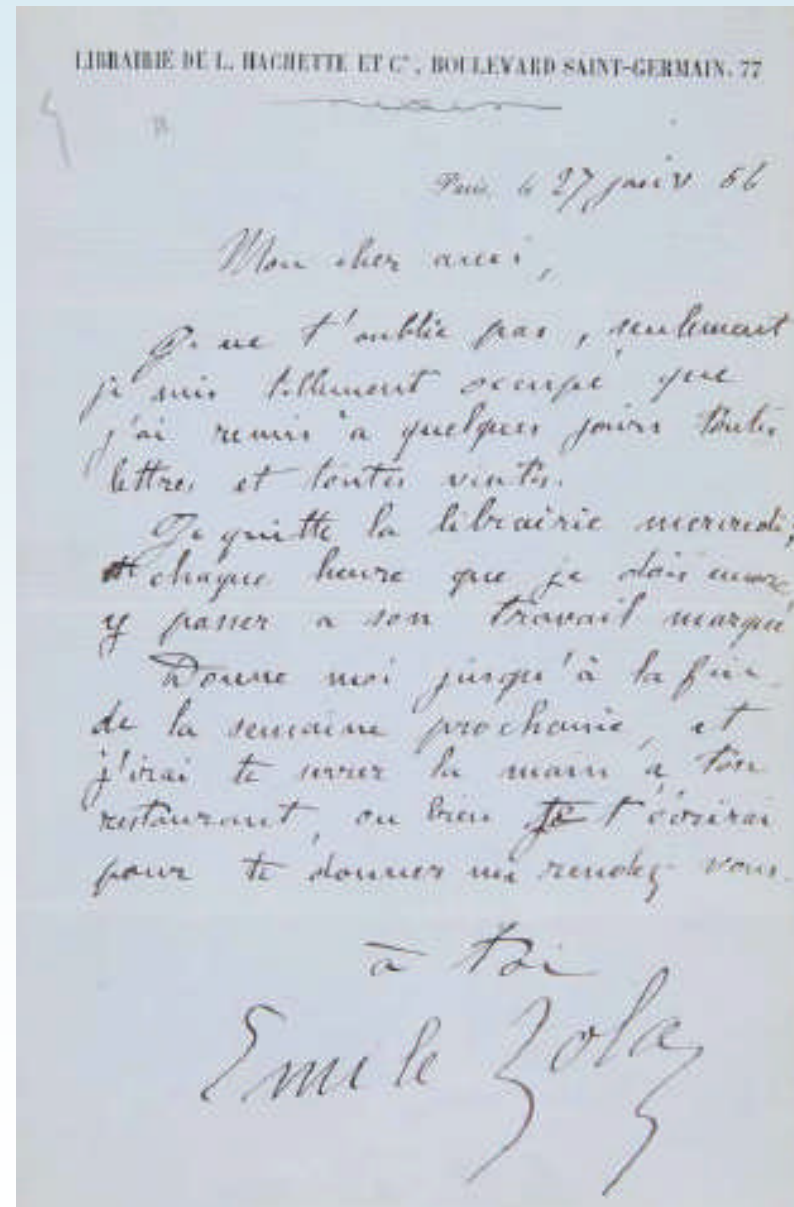 LIBRAIRIE DE L. HACHETTE ET Cie, BOULEVARD SAINT-GERMAIN, 77
Paris, le 27 janv 66
Mon cher ami,
Je ne t'oublie pas, seulement
je suis tellement occupé que
j'ai remis à quelques jours toutes
lettres et toutes visites.
Je quitte la librairie mercredi;
chaque heure que je dois encore
y passer a son travail marqué
Donne moi jusqu'à la fin
de la semaine prochaine, et
j'irai te serrer la main à ton
restaurant, ou bien je t'écrirai
pour te donner un rendez-vous.
à toi
Emile Zola